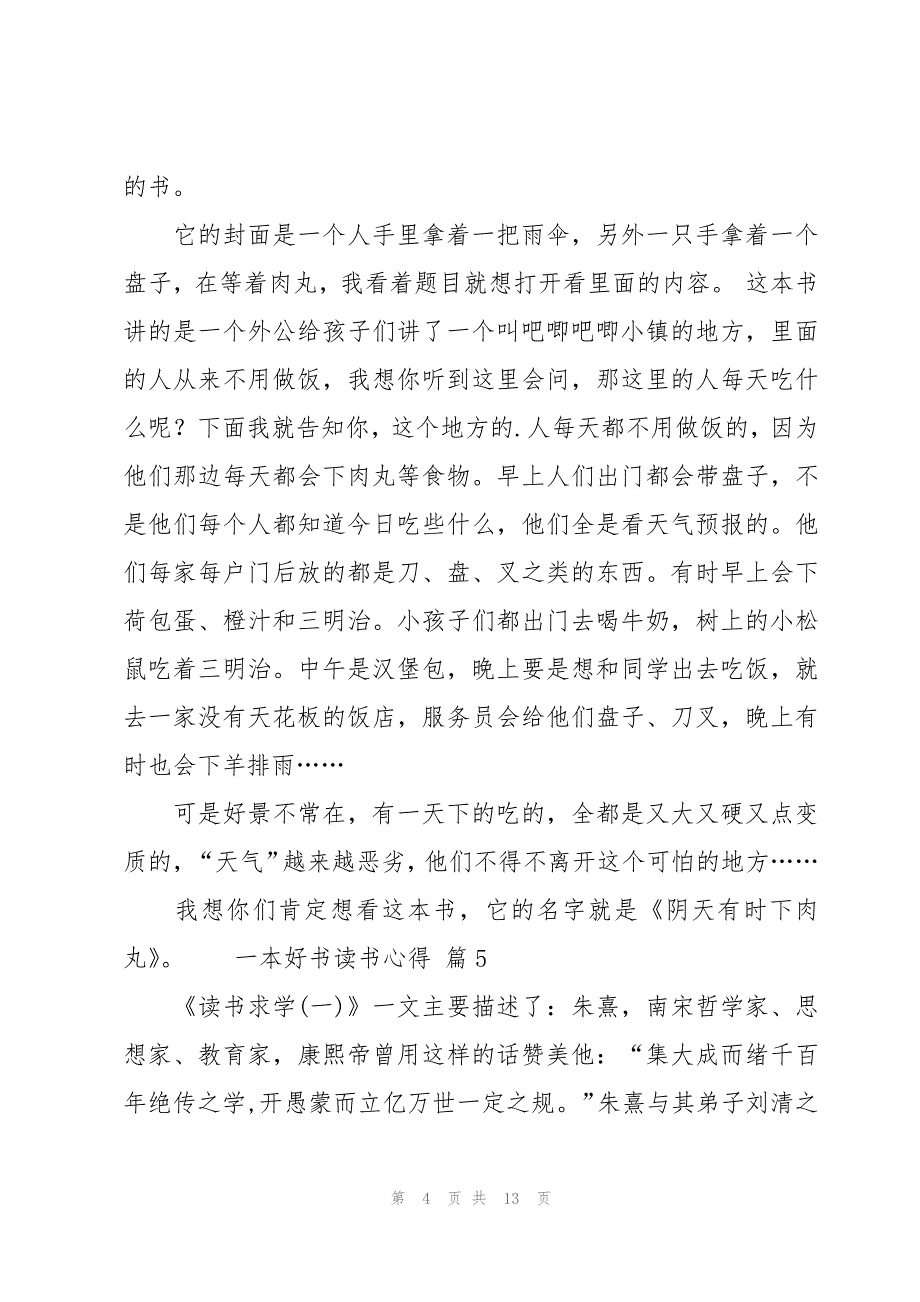 的书。
它的封面是一个人手里拿着一把雨伞，另外一只手拿着一个
盘子，在等着肉丸，我看着题目就想打开看里面的内容。 这本书
讲的是一个外公给孩子们讲了一个叫吧唧吧唧小镇的地方，里面
的人从来不用做饭，我想你听到这里会问，那这里的人每天吃什
么呢？下面我就告知你，这个地方的.人每天都不用做饭的，因为
他们那边每天都会下肉丸等食物。早上人们出门都会带盘子，不
是他们每个人都知道今日吃些什么，他们全是看天气预报的。他
们每家每户门后放的都是刀、盘、叉之类的东西。有时早上会下
荷包蛋、橙汁和三明治。小孩子们都出门去喝牛奶，树上的小松
鼠吃着三明治。中午是汉堡包，晚上要是想和同学出去吃饭，就
去一家没有天花板的饭店，服务员会给他们盘子、刀叉，晚上有
时也会下羊排雨……
可是好景不常在，有一天下的吃的，全都是又大又硬又点变
质的，“天气”越来越恶劣，他们不得不离开这个可怕的地方……
我想你们肯定想看这本书，它的名字就是《阴天有时下肉
丸》。 一本好书读书心得 篇5
《读书求学(一)》一文主要描述了：朱熹，南宋哲学家、思
想家、教育家，康熙帝曾用这样的话赞美他：“集大成而绪千百
年绝传之学,开愚蒙而立亿万世一定之规。”朱熹与其弟子刘清之
第 4 页 共 13 页